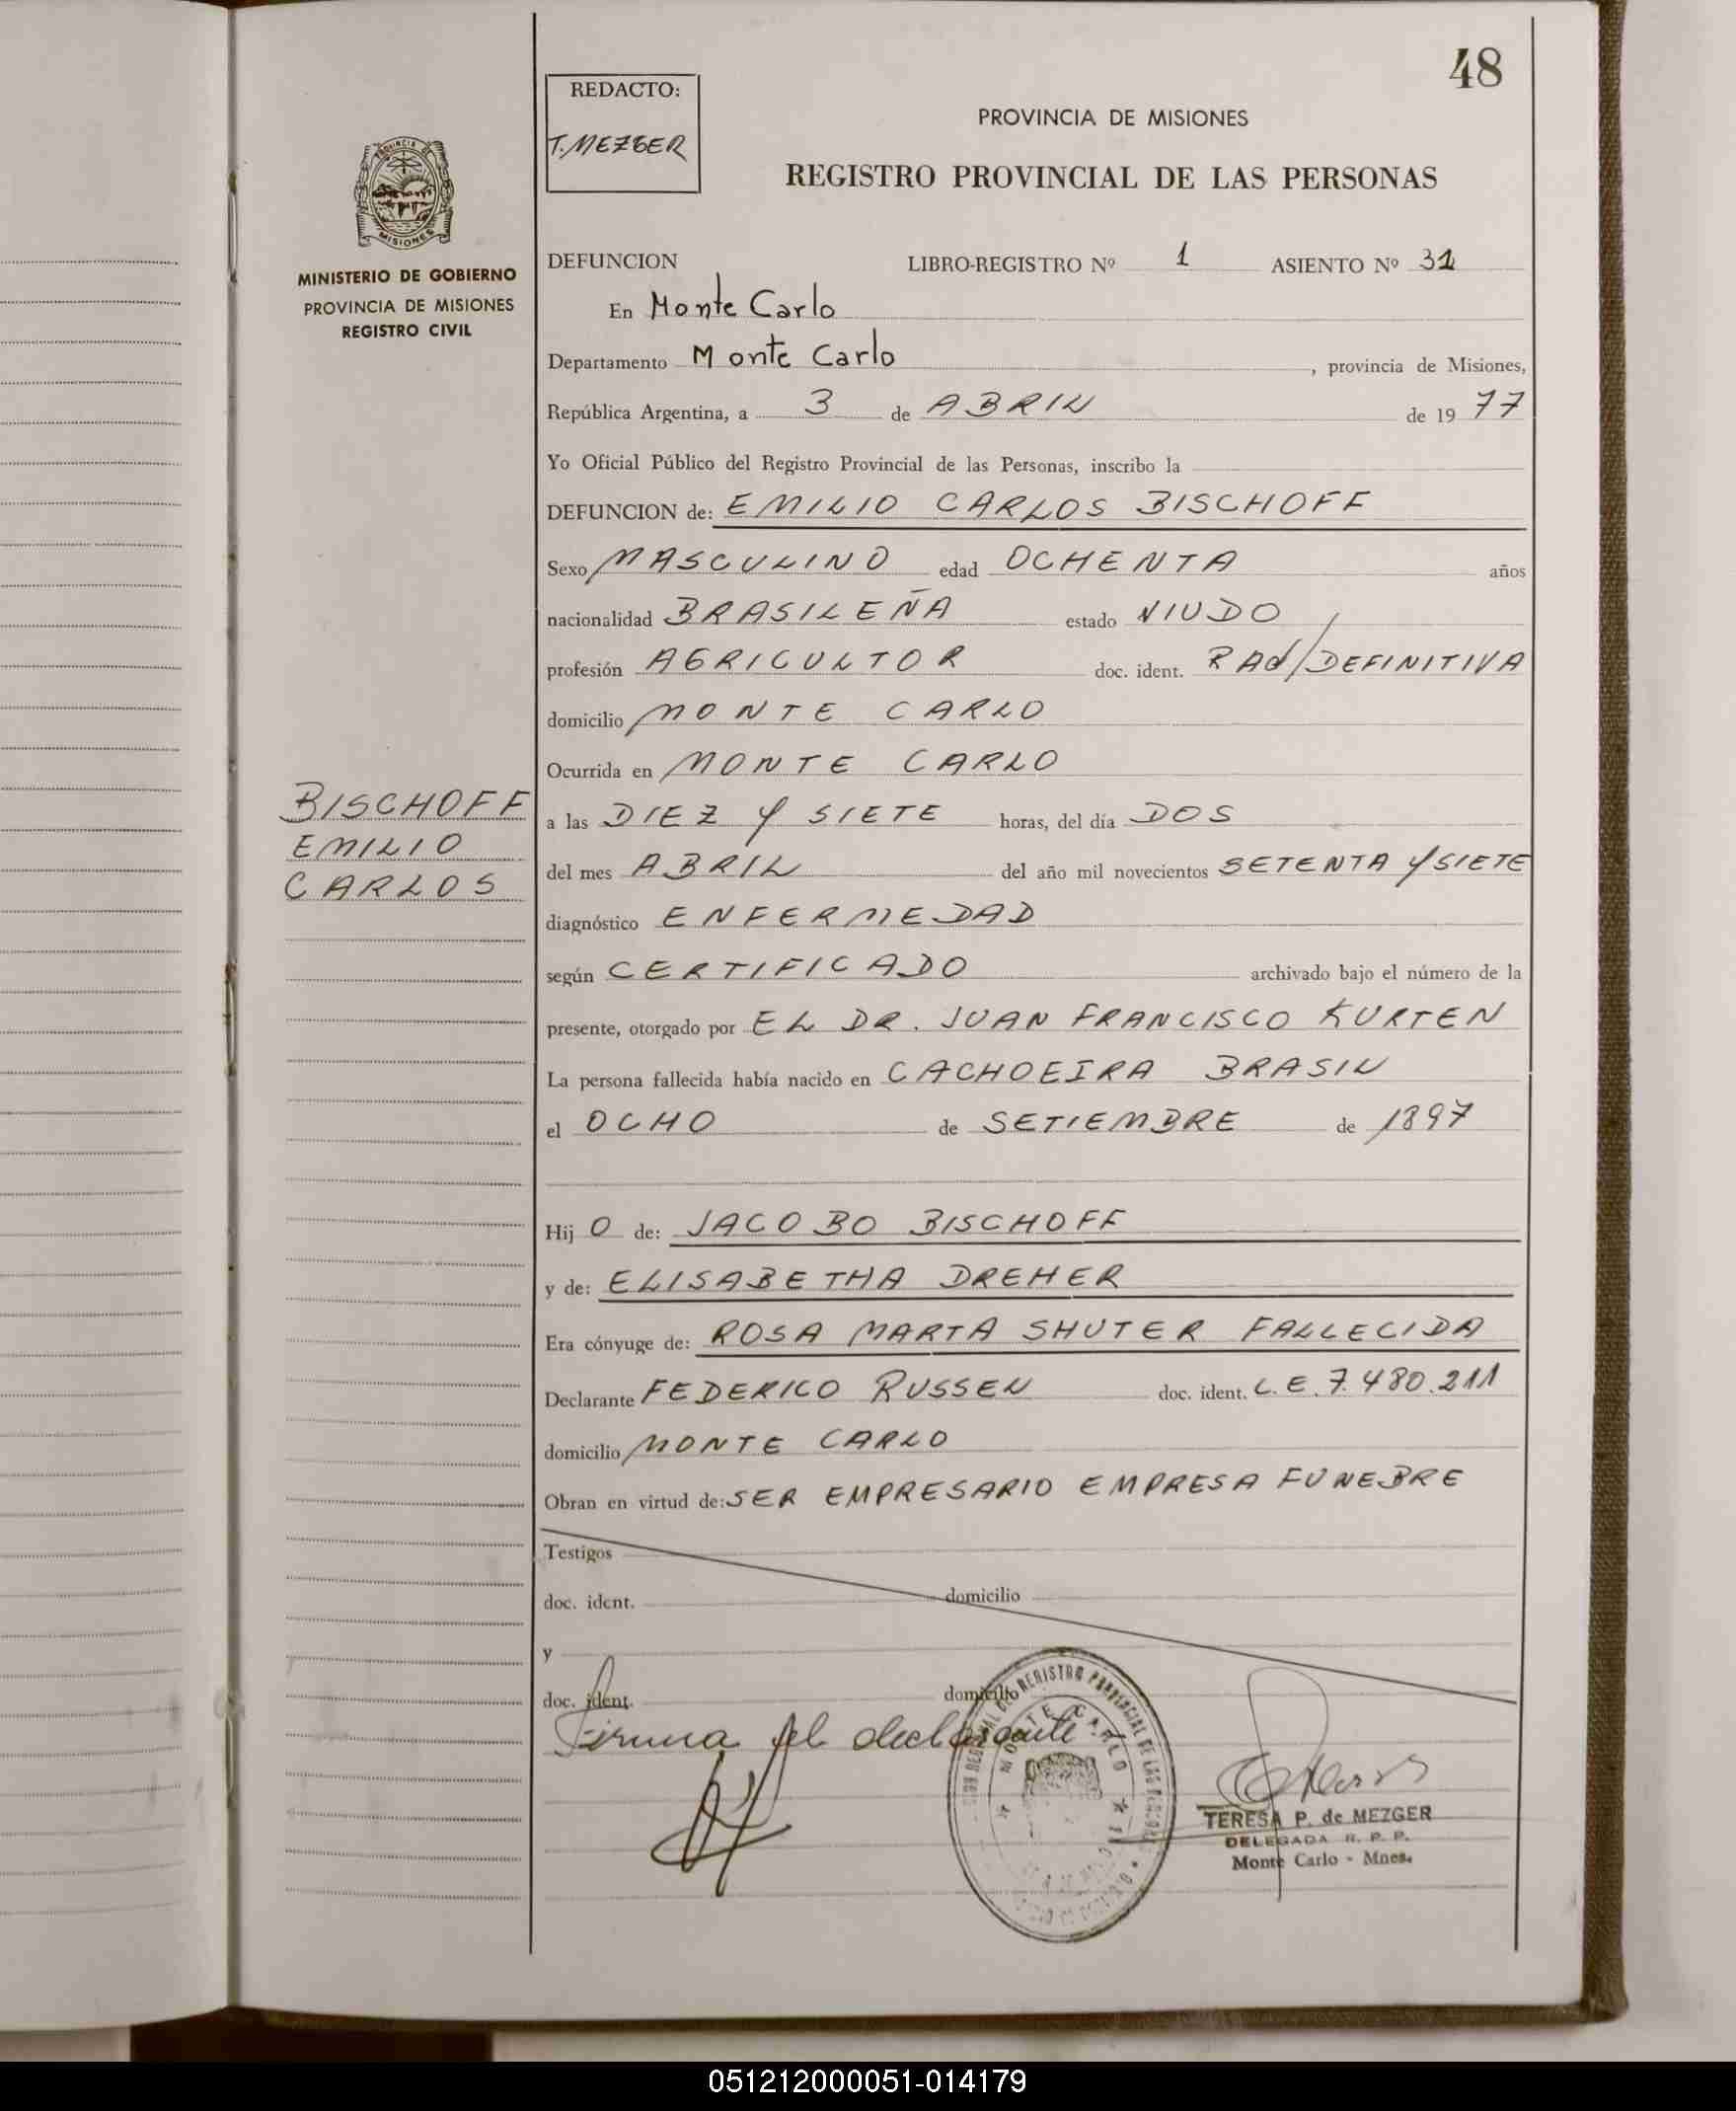 48
REDACTO:
T. MEZGER
PROVINCIA DE MISIONES
REGISTRO PROVINCIAL DE LAS PERSONAS
PROVINCIA DE
MISIONES
MINISTERIO DE GOBIERNO
PROVINCIA DE MISIONES
REGISTRO CIVIL
DEFUNCION LIBRO-REGISTRO Nº 1 ASIENTO Nº 31
En Monte Carlo
Departamento Monte Carlo, provincia de Misiones,
República Argentina, a 3 de ABRIL de 1977
Yo Oficial Público del Registro Provincial de las Personas, inscribo la
DEFUNCION de: EMILIO CARLOS BISCHOFF
Sexo MASCULINO edad OCHENTA años
nacionalidad BRASILEÑA estado VIUDO
profesión AGRICULTOR doc. ident. RAD/DEFINITIVA
domicilio MONTE CARLO
Ocurrida en MONTE CARLO
BISCHOFF
EMILIO
CARLOS
a las DIEZ Y SIETE horas, del día DOS
del mes ABRIL del año mil novecientos SETENTA Y SIETE
diagnóstico ENFERMEDAD
según CERTIFICADO archivado bajo el número de la
presente, otorgado por EL DR. JUAN FRANCISCO KURTEN
La persona fallecida había nacido en CACHOEIRA BRASIL
el OCHO de SETIEMBRE de 1897
Hij O de: JACOBO BISCHOFF
y de: ELISABETHA DREHER
Era cónyuge de: ROSA MARTA SHUTER FALLECIDA
Declarante FEDERICO RUSSEL doc. ident. L.E. 7.480.211
domicilio MONTE CARLO
Obran en virtud de: SER EMPRESARIO EMPRESA FUNEBRE
Testigos
doc. ident. domicilio
y
doc. ident. domicilio
Firma del declarante
REGISTRO PROVINCIAL DE LAS
MONTE CARLO
TERESA P. de MEZGER
DELEGADA R. P. P.
Monte Carlo - Mnes.
051212000051-014179